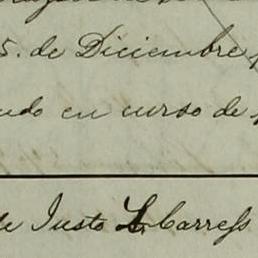 5. de Diciembre
en curso de
de Justo L. Carress